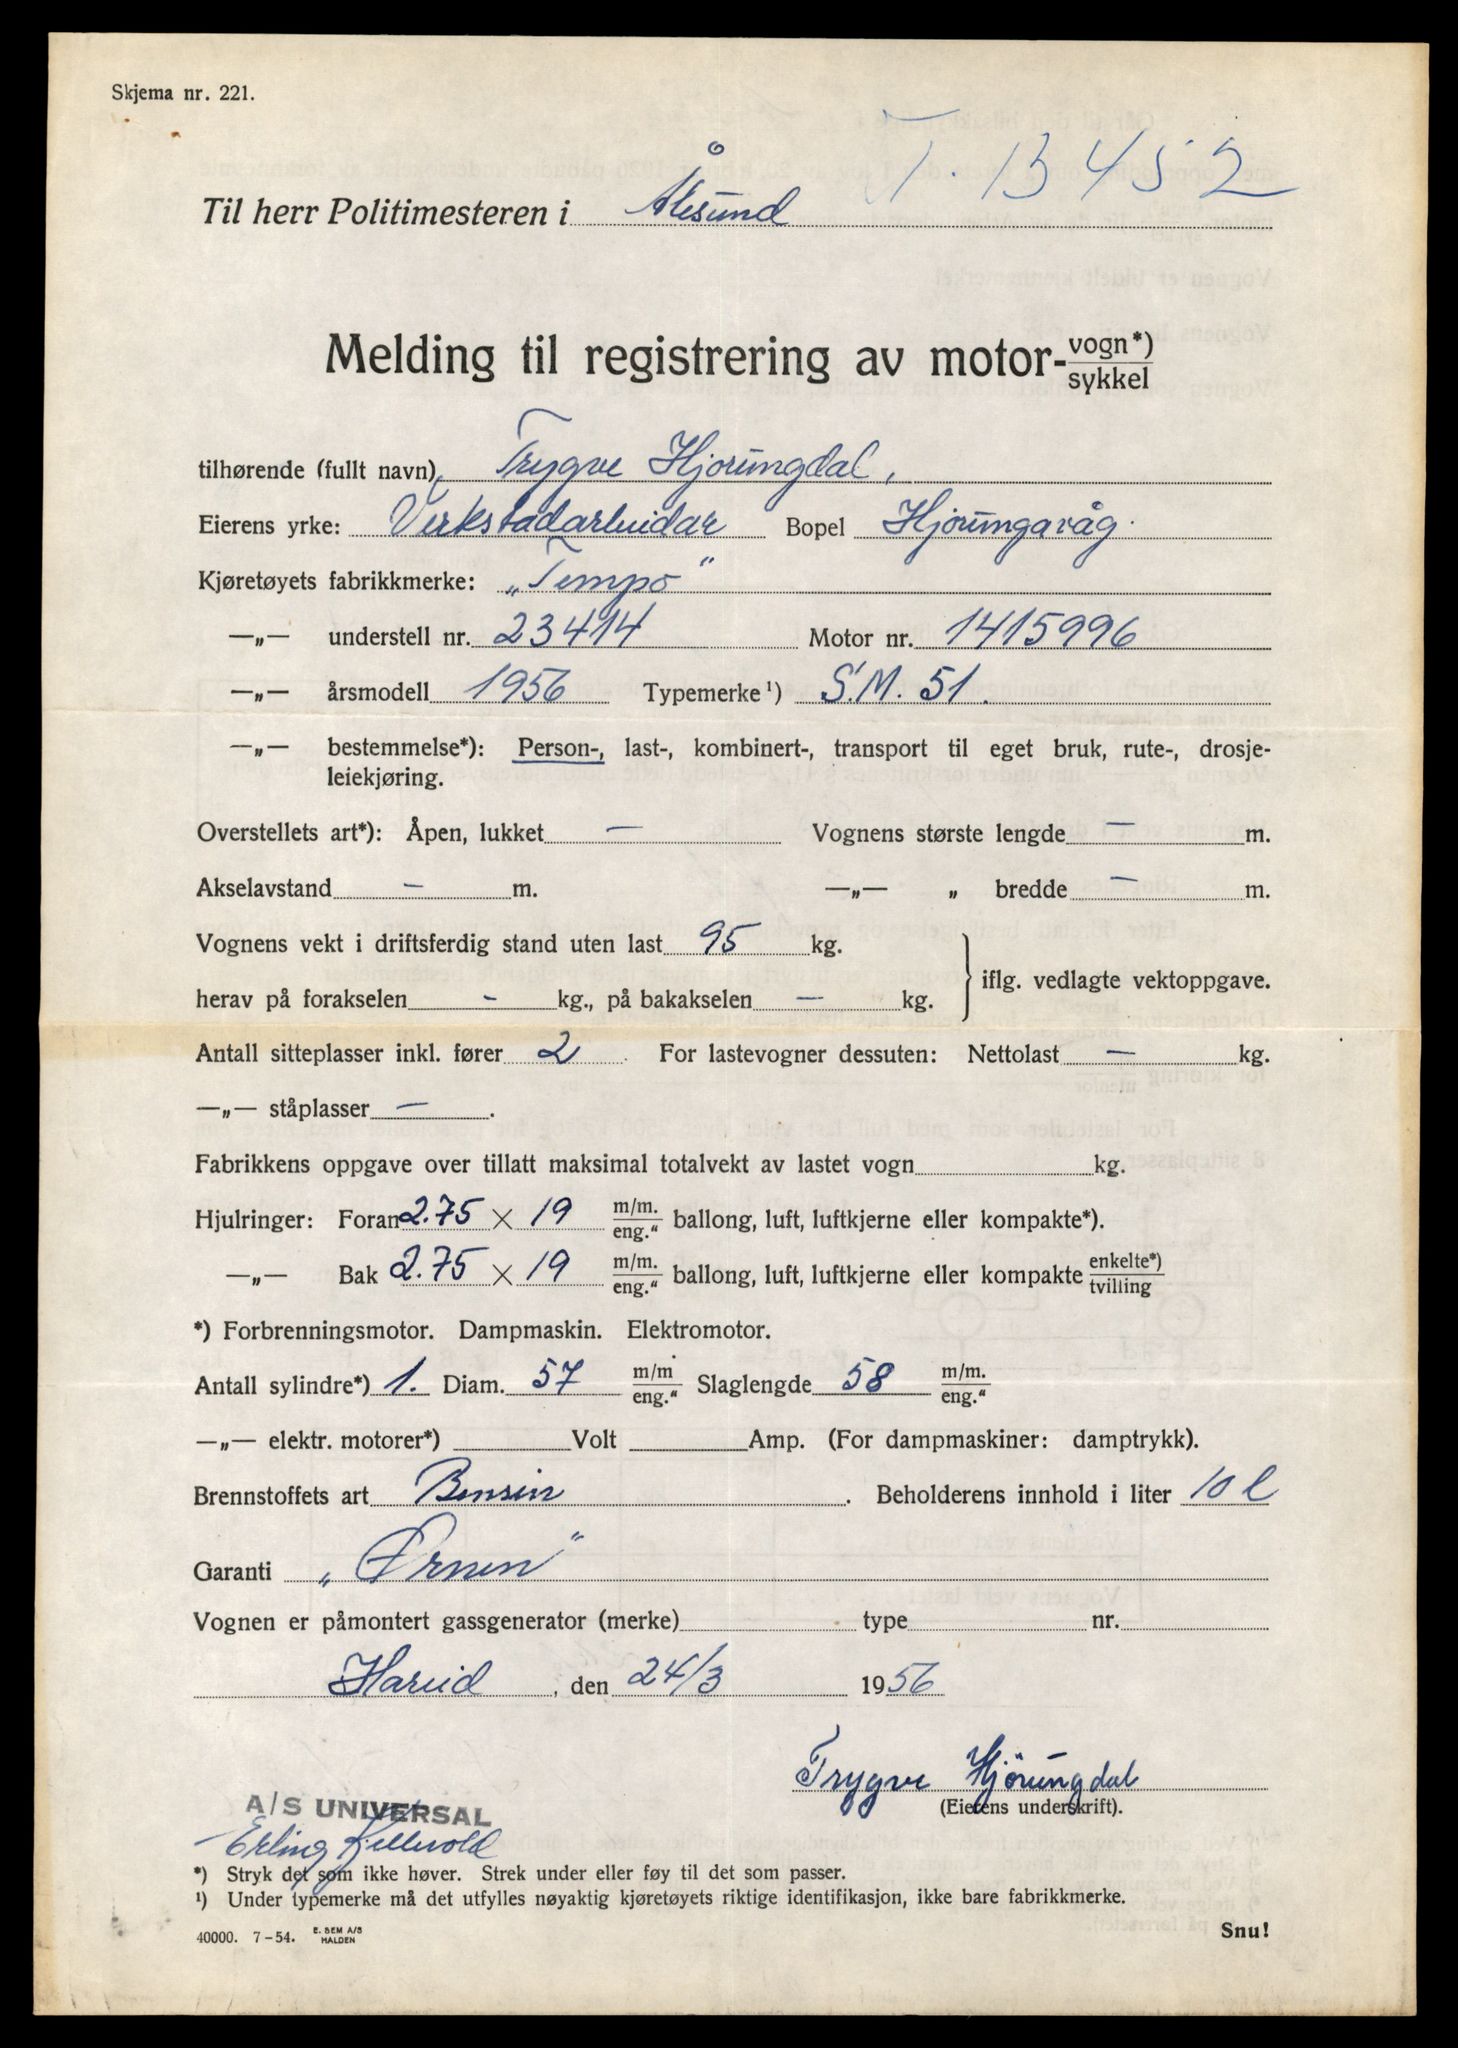 Skjema nr. 221.
T-13452
Til herr Politimesteren i Ålesund
Melding til registrering av motor-vogn*)
sykkel
tilhørende (fullt navn) Trygve Hjorungdal,
Eierens yrke: Verkstadarbeidar Bopel Hjorungavåg.
Kjøretøyets fabrikkmerke: „Tempo"
—„— understell nr. 23414 Motor nr. 1415996
—„— årsmodell 1956 Typemerke¹) S.M. 51.
—„— bestemmelse*): Person-, last-, kombinert-, transport til eget bruk, rute-, drosje-
leiekjøring.
Overstellets art*): Åpen, lukket — Vognens største lengde — m.
Akselavstand — m. —„— „ bredde — m.
Vognens vekt i driftsferdig stand uten last 95 kg.
herav på forakselen - kg., på bakakselen — kg. iflg. vedlagte vektoppgave.
Antall sitteplasser inkl. fører 2 For lastevogner dessuten: Nettolast — kg.
—„— ståplasser — .
Fabrikkens oppgave over tillatt maksimal totalvekt av lastet vogn kg.
Hjulringer: Foran 2.75 × 19 m/m. eng.“ ballong, luft, luftkjerne eller kompakte*).
—„— Bak 2.75 × 19 m/m. eng.“ ballong, luft, luftkjerne eller kompakte enkelte*) tvilling
*) Forbrenningsmotor. Dampmaskin. Elektromotor.
Antall sylindre*) 1. Diam. 57 m/m eng.“ Slaglengde 58 m/m. eng.“
—„— elektr. motorer*) Volt Amp. (For dampmaskiner: damptrykk).
Brennstoffets art Bensin . Beholderens innhold i liter 10 l
Garanti „Ørnen"
Vognen er påmontert gassgenerator (merke) type nr.
Hareid , den 24/3 1956
Trygve Hjörungdal
(Eierens underskrift).
A/S UNIVERSAL
Erling Kjellevold
*) Stryk det som ikke høver. Strek under eller føy til det som passer.
¹) Under typemerke må det utfylles nøyaktig kjøretøyets riktige identifikasjon, ikke bare fabrikkmerke.
40000. 7-54. E. SEM A/S HALDEN
Snu!